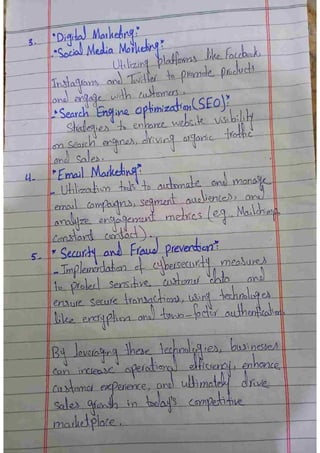 3. "Digital Marketing:"
"Social Media Marketing:"
Utilizing platforms like Facebook,
Instagram and Twitter to promote products
and engage with customers.
"Search Engine Optimization (SEO):"
Strategies to enhance website visibility
on search engines, driving organic traffic
and sales.
4. "Email Marketing:"
- Utilization tools to automate and manage
email campaigns, segment audiences, and
analyze engagement metrics (eg. Mailchimp,
constant contact).
5. "Security and Fraud prevention:"
- Implementation of cybersecurity measures
to protect sensitive customer data and
ensure secure transactions, using technologies
like encryption and two-factor authentication.
By leveraging these technologies, businesses
can increase operational efficiency, enhance
customer experience, and ultimately drive
sales growth in today's competitive
marketplace.